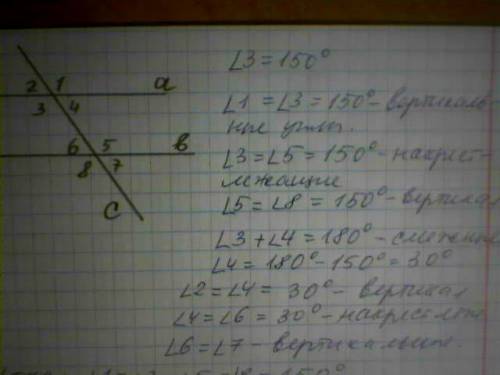 2 1 a
3 4
6 5 b
8 7
c
∠3 = 150°
∠1 = ∠3 = 150° - вертикаль-
ные углы.
∠3 = ∠5 = 150° - накрест-
лежащие
∠5 = ∠8 = 150° - вертикал
∠3 + ∠4 = 180° - смежные
∠4 = 180° - 150° = 30°
∠2 = ∠4 = 30° - вертикал
∠4 = ∠6 = 30° - накрест леж
∠6 = ∠7 - вертикальные.